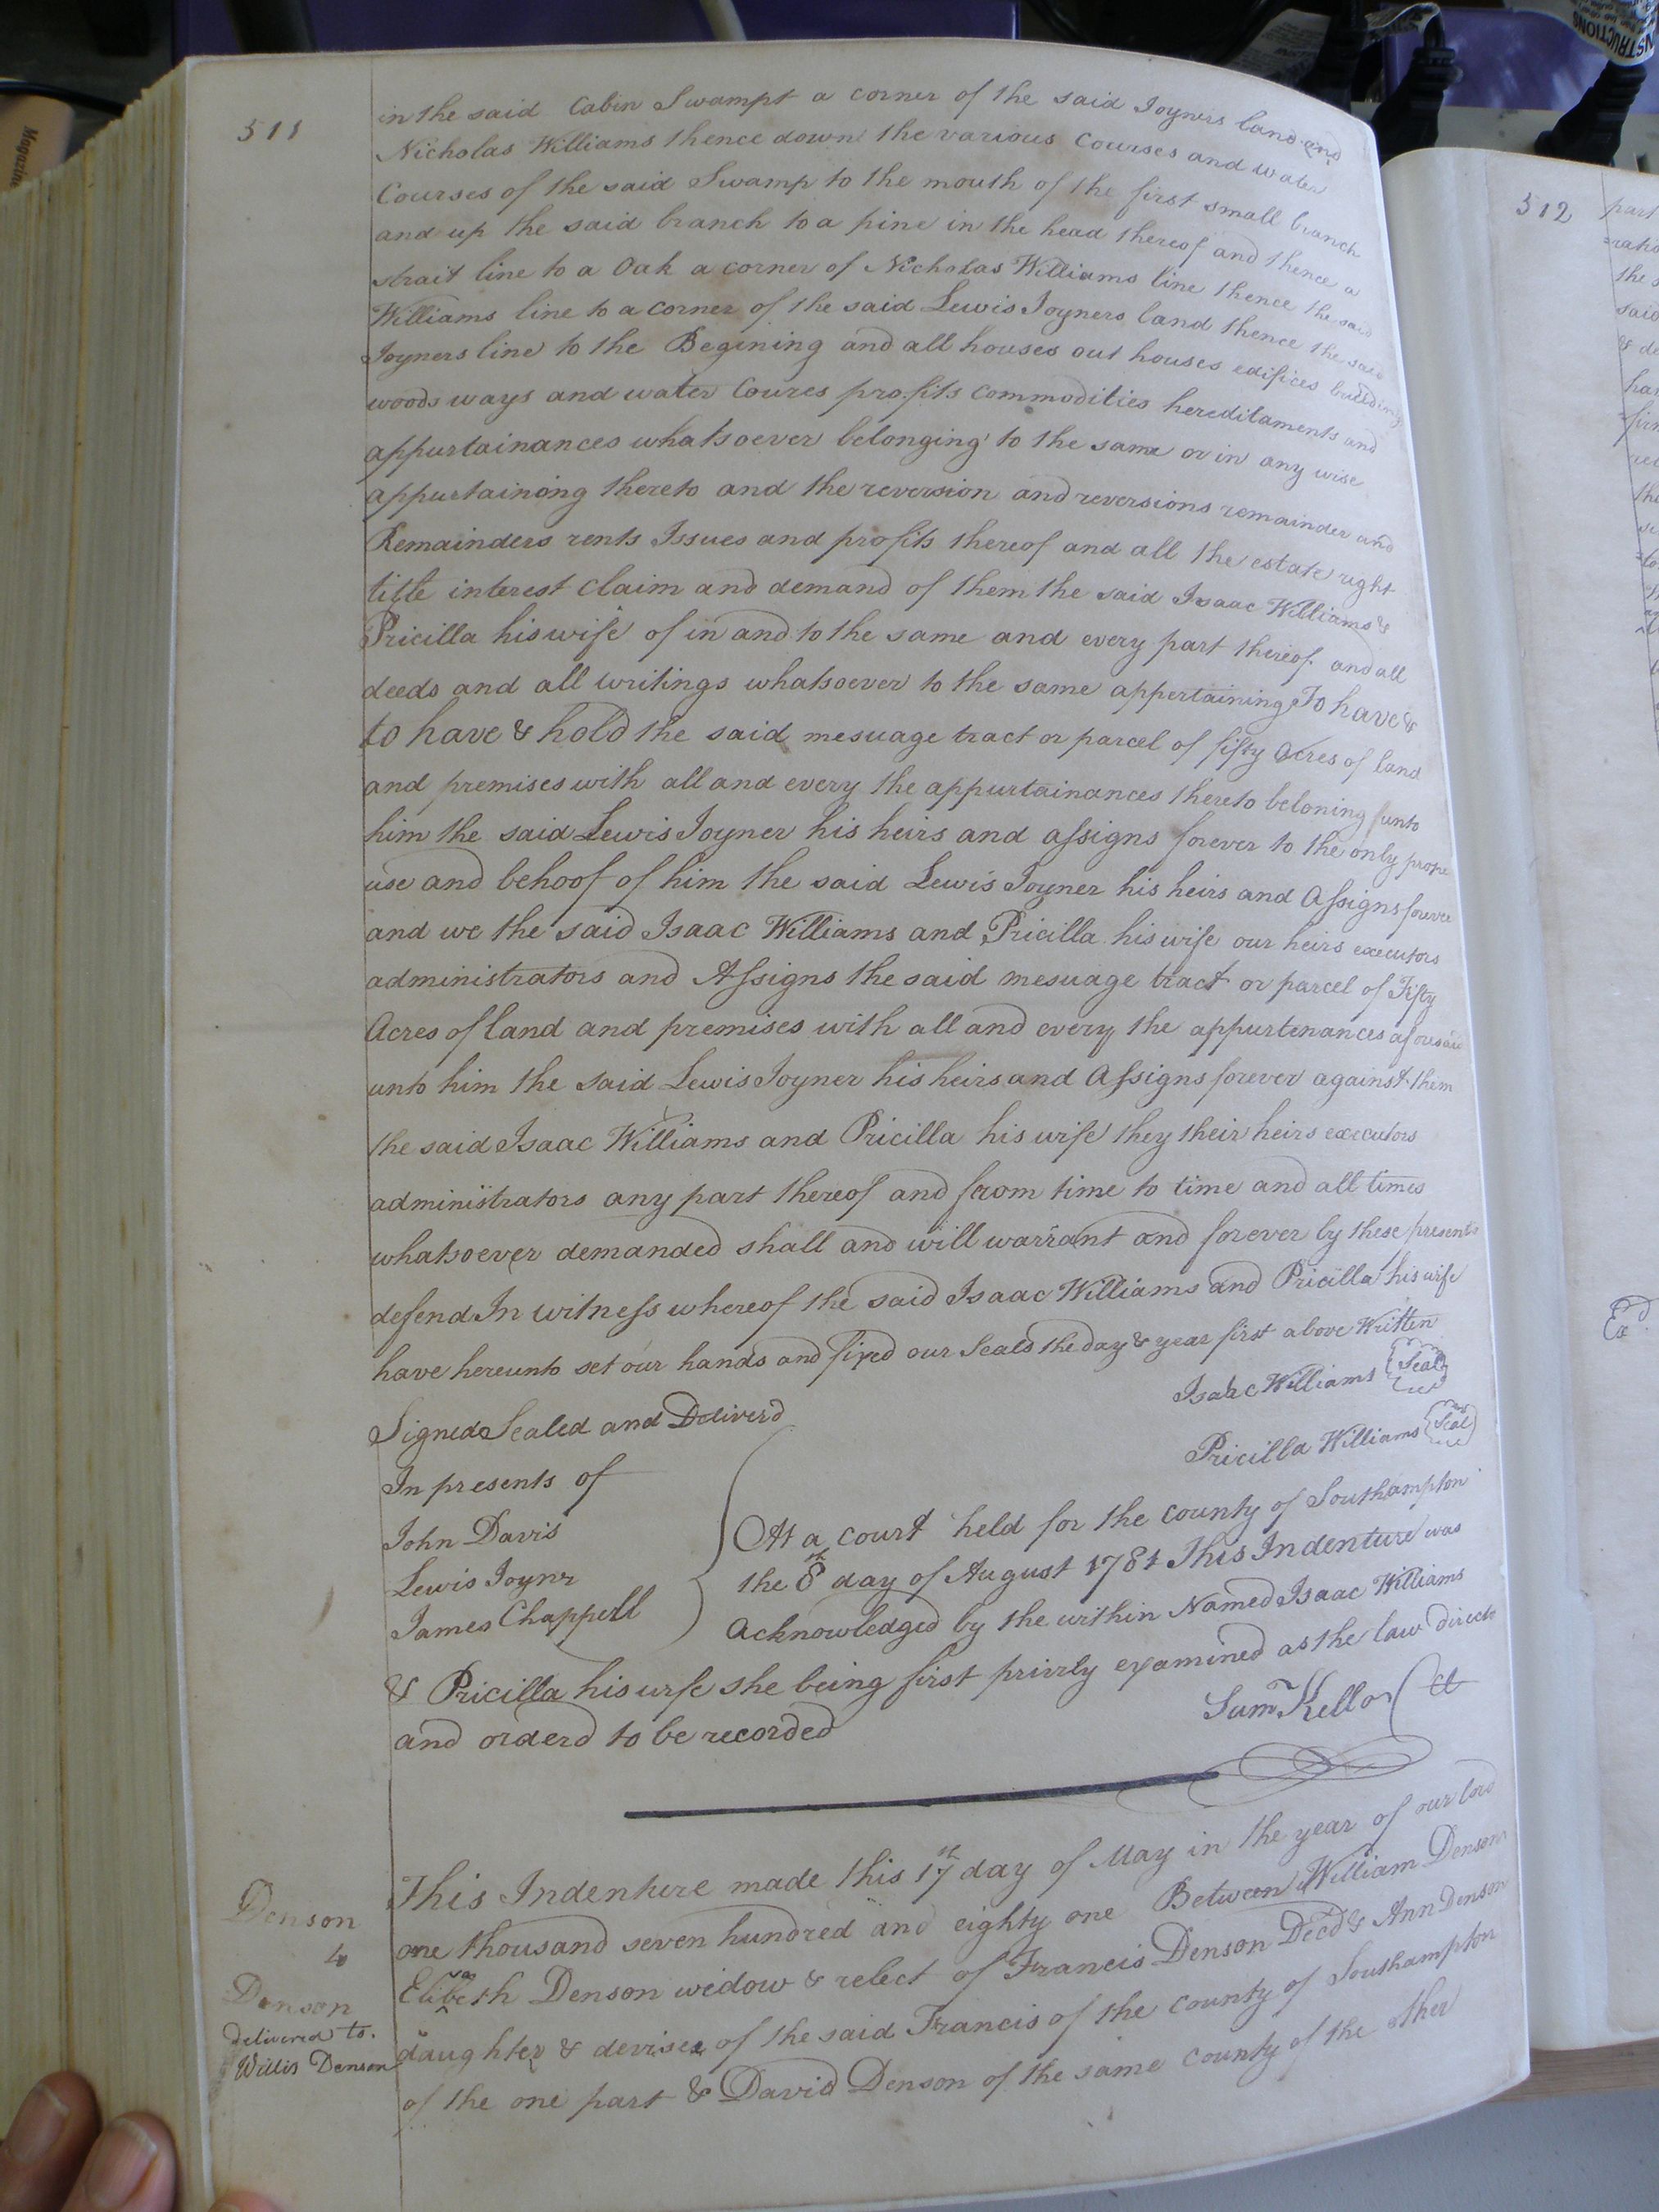 511
in the said Cabin Swampt a corner of the said Joyners land and
Nicholas Williams thence down the various Courses and water
Courses of the said Swamp to the mouth of the first small branch
and up the said branch to a pine in the head thereof and thence a
strait line to a Oak a corner of Nicholas Williams line thence the said
Williams line to a corner of the said Lewis Joyners land thence the said
Joyners line to the Begining and all houses out houses edifices building
woods ways and water Coures profits Commodities hereditaments and
appurtainances whatsoever belonging to the same or in any wise
appurtaining thereto and the reversion and reversions remainder and
Remainders rents Issues and profits thereof and all the estate right
title interest Claim and demand of them the said Isaac Williams &
Pricilla his wife of in and to the same and every part thereof and all
deeds and all writings whatsoever to the same appertaining To have &
to have & hold the said mesuage tract or parcel of fifty Acres of land
and premises with all and every the appurtainances thereto beloning unto
him the said Lewis Joyner his heirs and assigns forever to the only prope
use and behoof of him the said Lewis Joyner his heirs and Assigns forever
and we the said Isaac Williams and Pricilla his wife our heirs executors
administrators and Assigns the said mesuage tract or parcel of Fifty
Acres of land and premises with all and every the appurtenances aforesaid
unto him the said Lewis Joyner his heirs and Assigns forever against them
the said Isaac Williams and Pricilla his wife they their heirs executors
administrators any part thereof and from time to time and all times
whatsoever demanded shall and will warrant and forever by these presents
defend In witness whereof the said Isaac Williams and Pricilla his wife
have hereunto set our hands and fixed our Seals the day & year first above Written
Isaac Williams Seal
Signed Sealed and Deliverd
Pricilla Williams Seal
In presents of
John Davis
Lewis Joynr
James Chappell
At a court held for the county of Southampton
the 8th day of August 1781 This Indenture was
Acknowledged by the within Named Isaac Williams
& Pricilla his wife she being first privily examined as the law directs
and orderd to be recorded
Sam Kello
This Indenture made this 17th day of May in the year of our lord
one thousand seven hundred and eighty one Between William Denson
Elizabeth Denson widow & relect of Francis Denson Decd & Ann Denson
daughter & devisee of the said Francis of the county of Southampton
of the one part & David Denson of the same county of the other
Denson
to
Denson
delivered to
Willis Denson
512
part
the
said